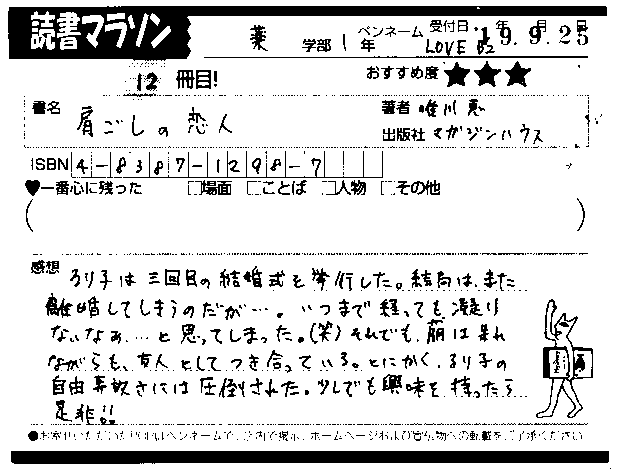 読書マラソン
薬 学部 1 年 ペンネーム LOVE B'z 受付日 '19.9.25
12 冊目! おすすめ度 ★★★
書名 肩ごしの恋人 著者 唯川 恵
出版社 マガジンハウス
ISBN 4-8387-1298-7
♥一番心に残った □場面 □ことば □人物 □その他
( )
感想 るり子は三回目の結婚式を挙行した。結局は、また
離婚してしまうのだが…。いつまで経っても凝り
ないなぁ…と思ってしまった。(笑)それでも、萌は呆れ
ながらも、友人としてつき合っている。とにかく、るり子の
自由奔放さには圧倒された。少しでも興味を持ったら
是非!!
●お寄せいただいたPOPはペンネームで、店内で掲示、ホームページおよび宣伝物への転載をご了承ください